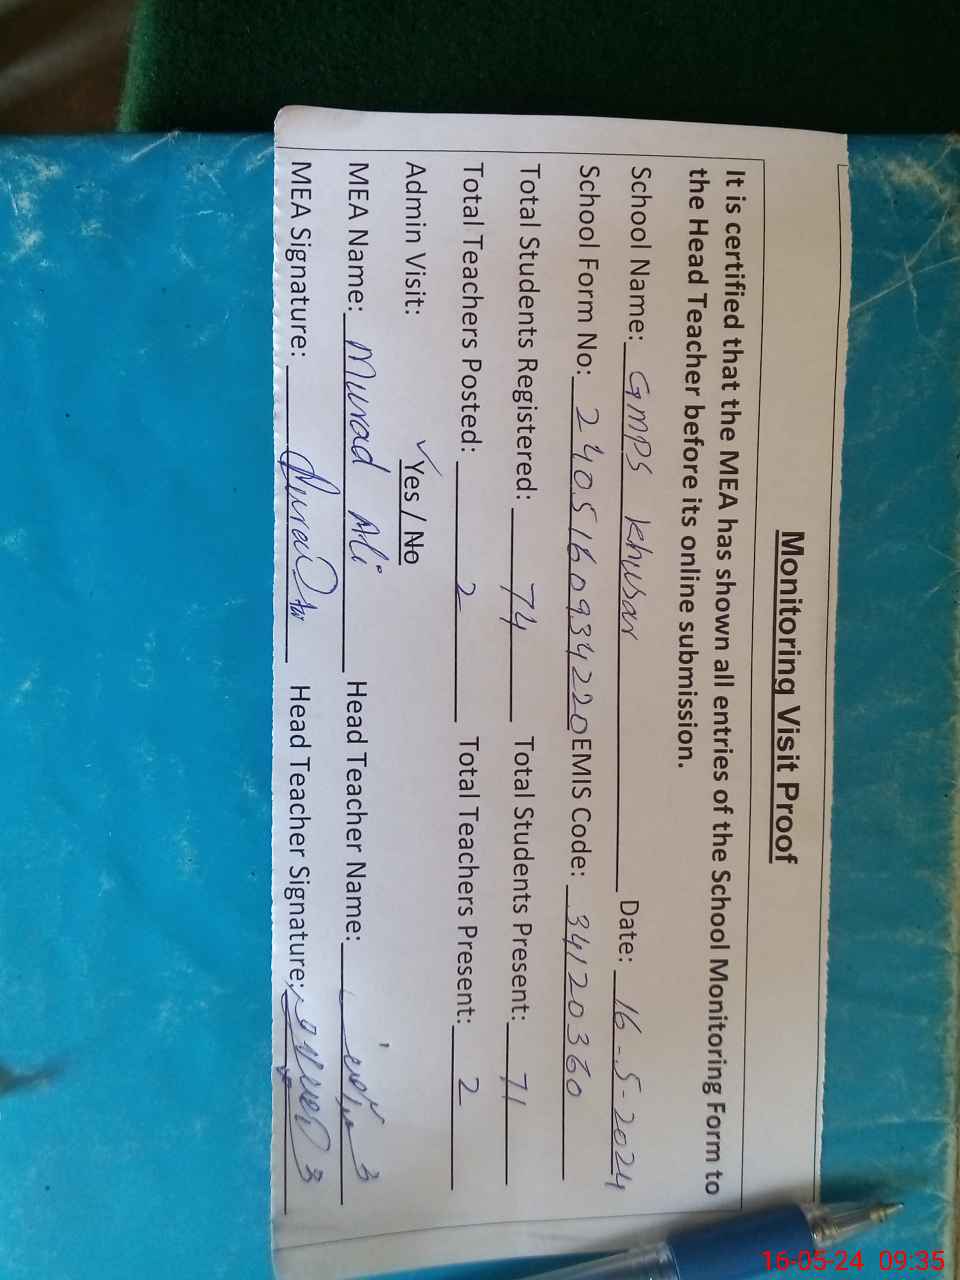 Monitoring Visit Proof
It is certified that the MEA has shown all entries of the School Monitoring Form to
the Head Teacher before its online submission.
School Name: GMPS Khusar Date: 16-5-2024
School Form No: 2405160934220 EMIS Code: 34120360
Total Students Registered: 74 Total Students Present: 71
Total Teachers Posted: 2 Total Teachers Present: 2
Admin Visit: ✓Yes / No
MEA Name: Murad Ali Head Teacher Name:
MEA Signature: Head Teacher Signature:
16-05-24 09:35